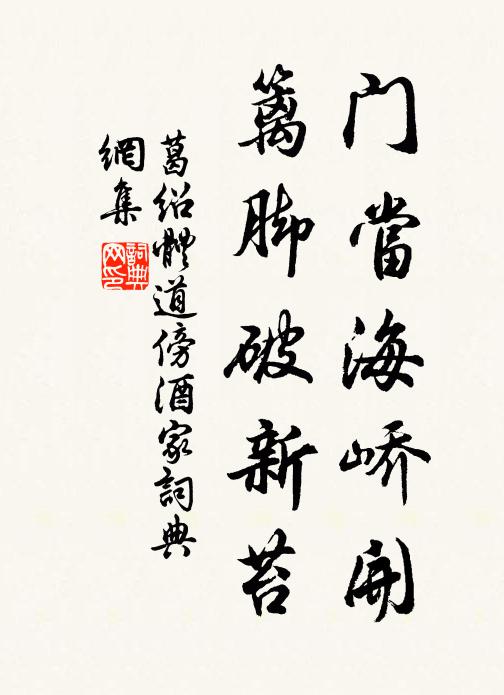 门當海嶠開
籬脚破新苔
葛绍體道傍酒家詞典
網集
詞典
网印